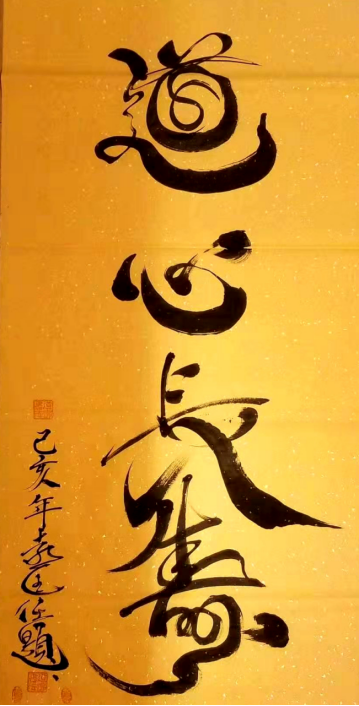 道心長壽
己亥年
任題